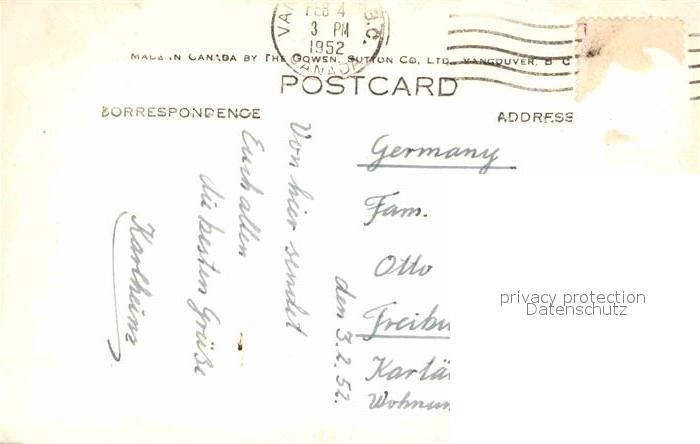 VAN
FEB 4
3 PM
1952
B.C.
CANADA
MADE IN CANADA BY THE GOWEN, SUTTON CO. LTD., VANCOUVER, B C
POSTCARD
CORRESPONDENCE
ADDRESS
den 3.2.52.
Von hier sendet
Euch allen
die besten Grüße
Karlheinz
Germany
Fam.
Otto
Freibu
Kartä
Wohnun
privacy protection
Datenschutz